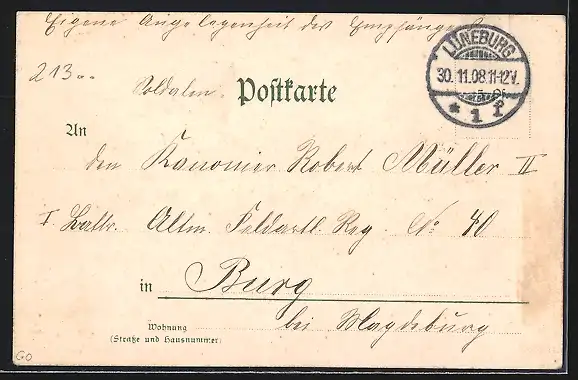 Eigene Angelegenheit des Empfängers
LÜNEBURG
30.11.08.11-12V.
* 1 f
213..
Soldaten
Postkarte
An
den Kanonier Robert Müller II
I Battr. Altm. Feldartl. Reg. No. 40
in Burg
bei Magdeburg
Wohnung
(Straße und Hausnummer)
GO